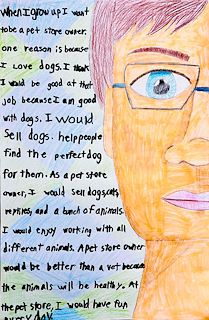 When I grow up I want
to be a pet store owner.
one reason is because
I love dogs. I think
I would be good at that
job because I am good
with dogs. I would
sell dogs. help people
find the perfect dog
for them. As a pet store
owner, I would sell dogs, cats,
reptiles, and a bunch of animals.
I would enjoy working with all
different animals. A pet store owner
would be better than a vet because
the animals will be healthy. At
the pet store, I would have fun
every day.